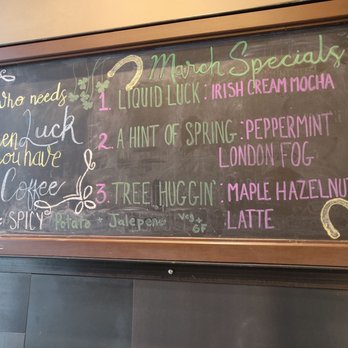 March Specials
Who needs
Luck
you have
Coffee
1. LIQUID LUCK: IRISH CREAM MOCHA
2. A HINT OF SPRING: PEPPERMINT
LONDON FOG
3. TREE HUGGIN': MAPLE HAZELNUT
LATTE
SPICY Potato + Jalepeno Veg + GF